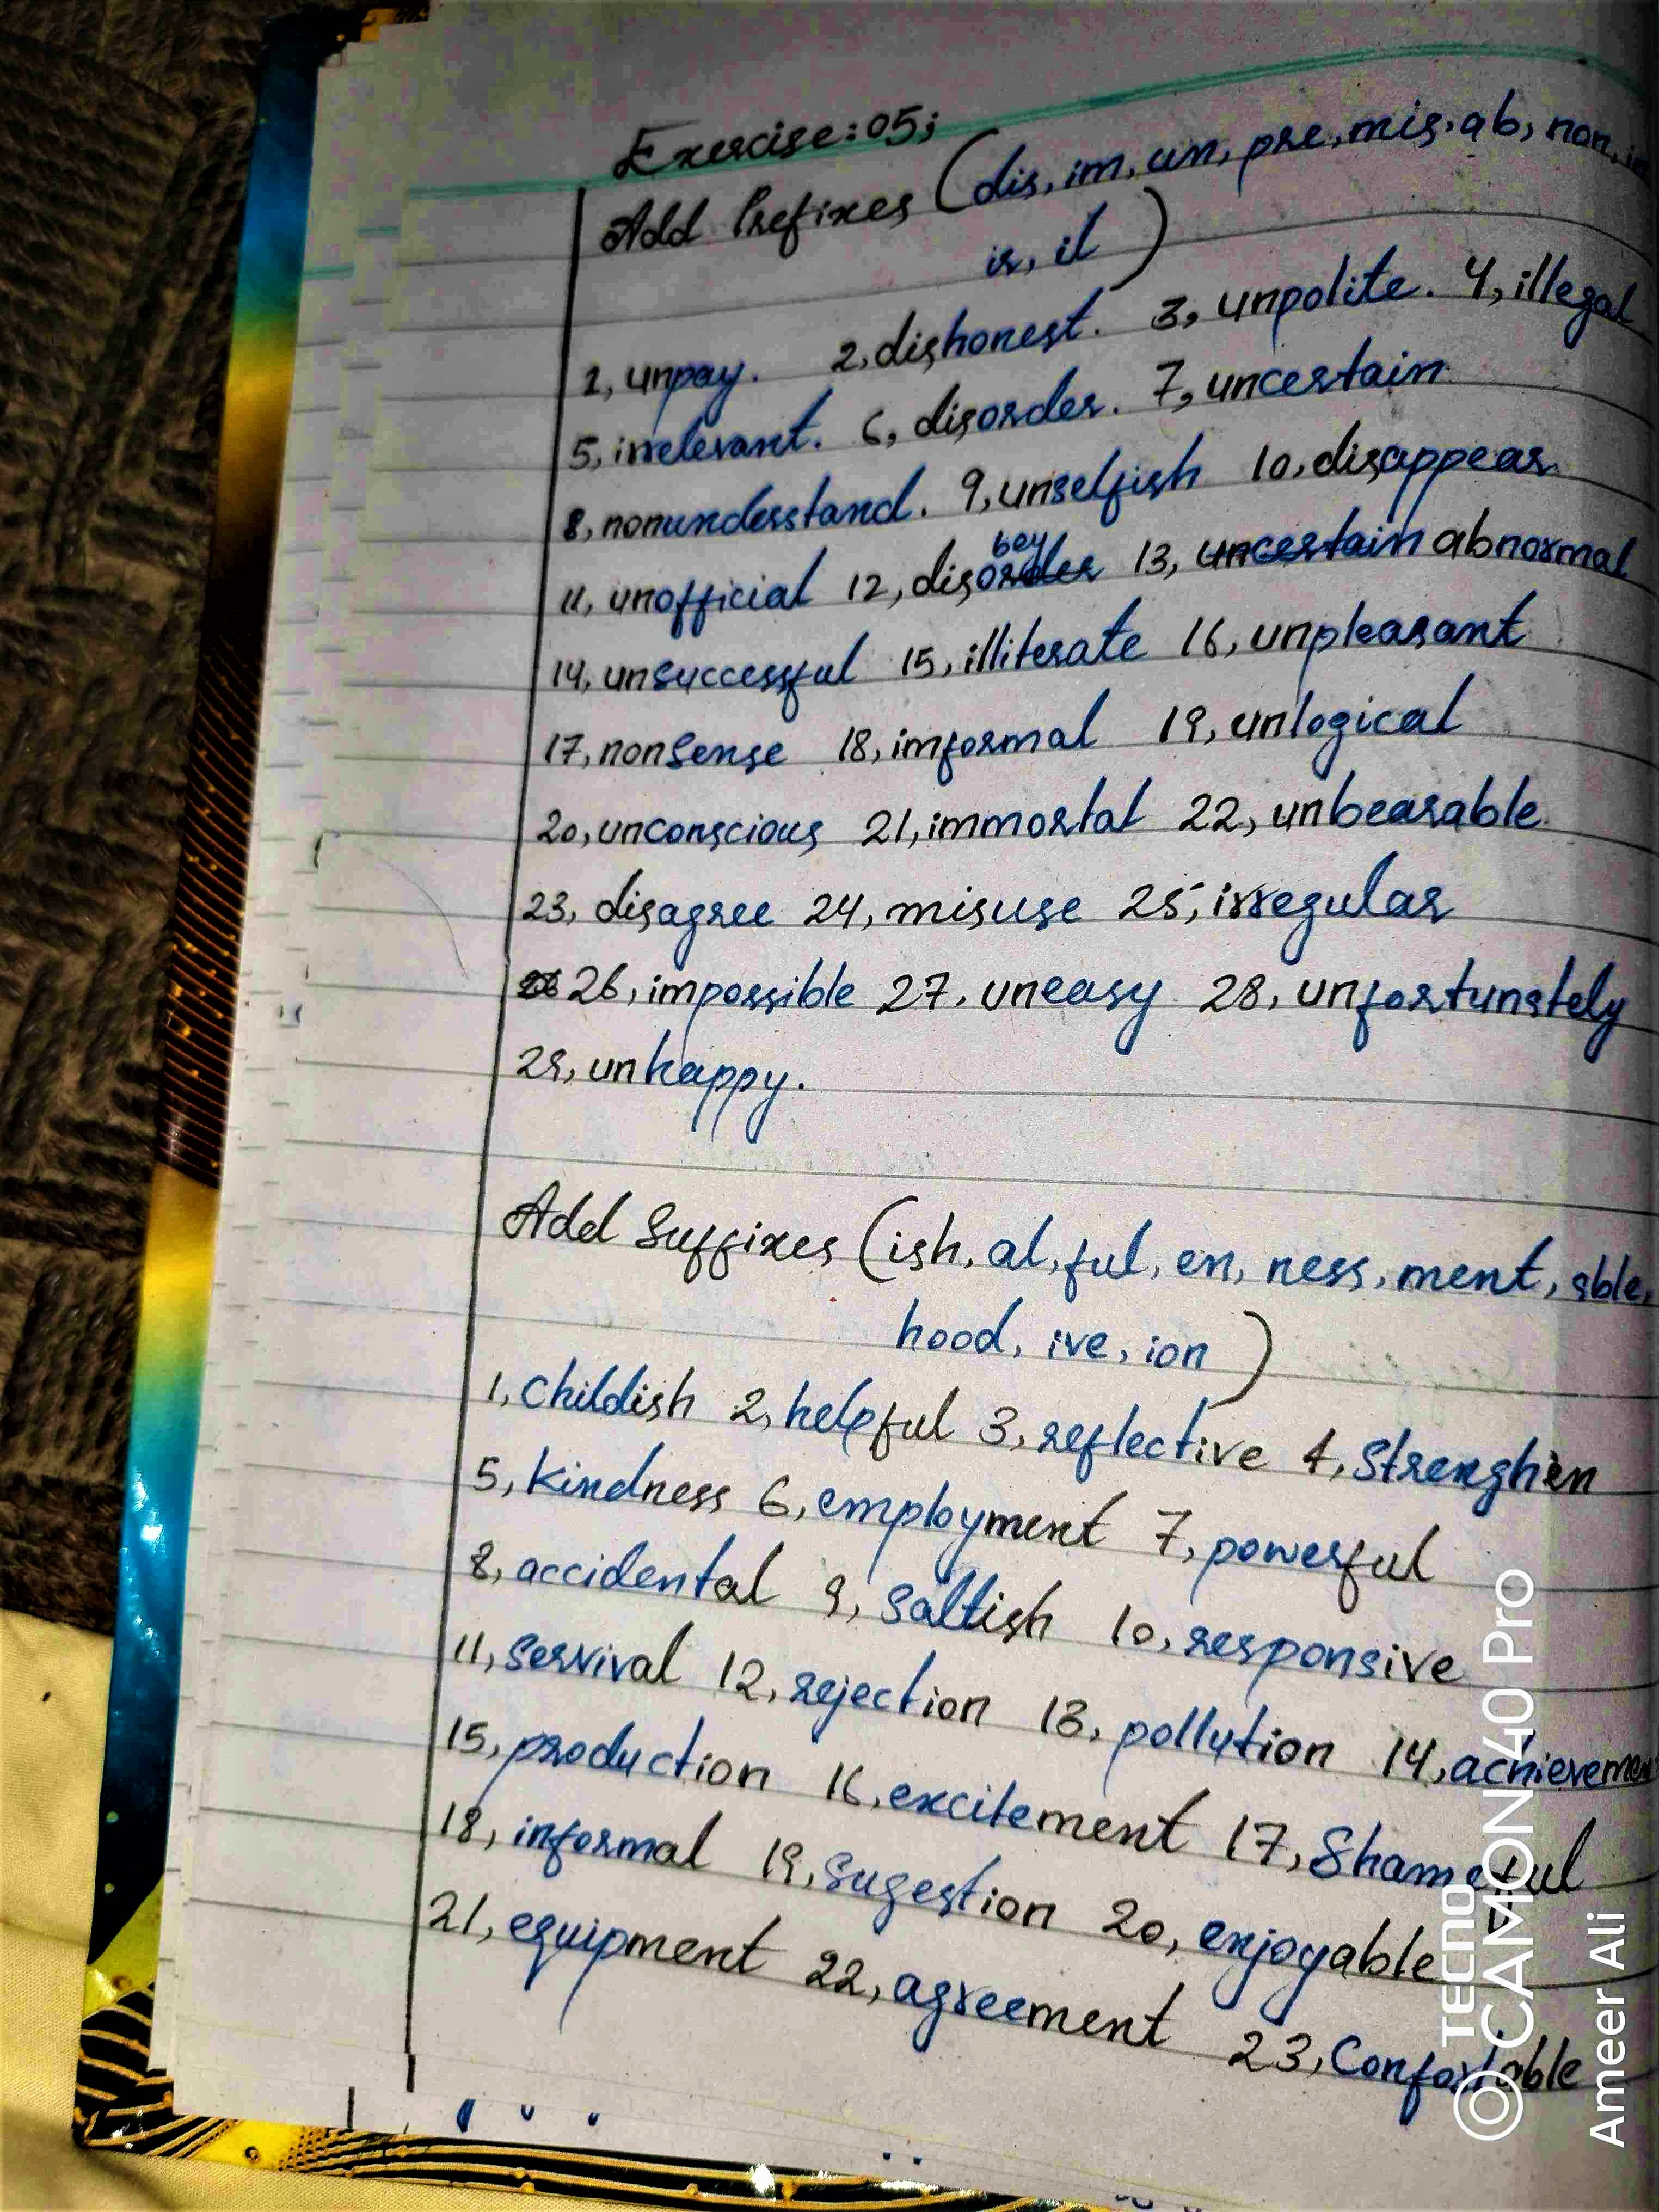 Exercise:05;
Add Prefixes (dis, im, un, pre, mis, ab, non, in
ir, il)
1, unpay. 2, dishonest. 3, unpolite. 4, illegal
5, irrelevant. 6, disorder. 7, uncertain
8, nonunderstand. 9, unselfish 10, disappear
11, unofficial 12, disobey 13, uncertain abnormal
14, unsuccessful 15, illiterate 16, unpleasant
17, nonsense 18, imformal 19, unlogical
20, unconscious 21, immortal 22, unbearable
23, disagree 24, misuse 25, irregular
26, impossible 27, uneasy 28, unfortunately
29, unhappy.
Add Suffixes (ish, al, ful, en, ness, ment, able,
hood, ive, ion)
1, childish 2, helpful 3, reflective 4, Strenghen
5, kindness 6, employment 7, powerful
8, accidental 9, Saltish 10, responsive
11, Servival 12, rejection 13, pollution 14, achievemen
15, production 16, excitement 17, Shameful
18, informal 19, Sugestion 20, enjoyable
21, equipment 22, agreement 23, Confortable
TECNO
CAMON 40 Pro
Ameer Ali